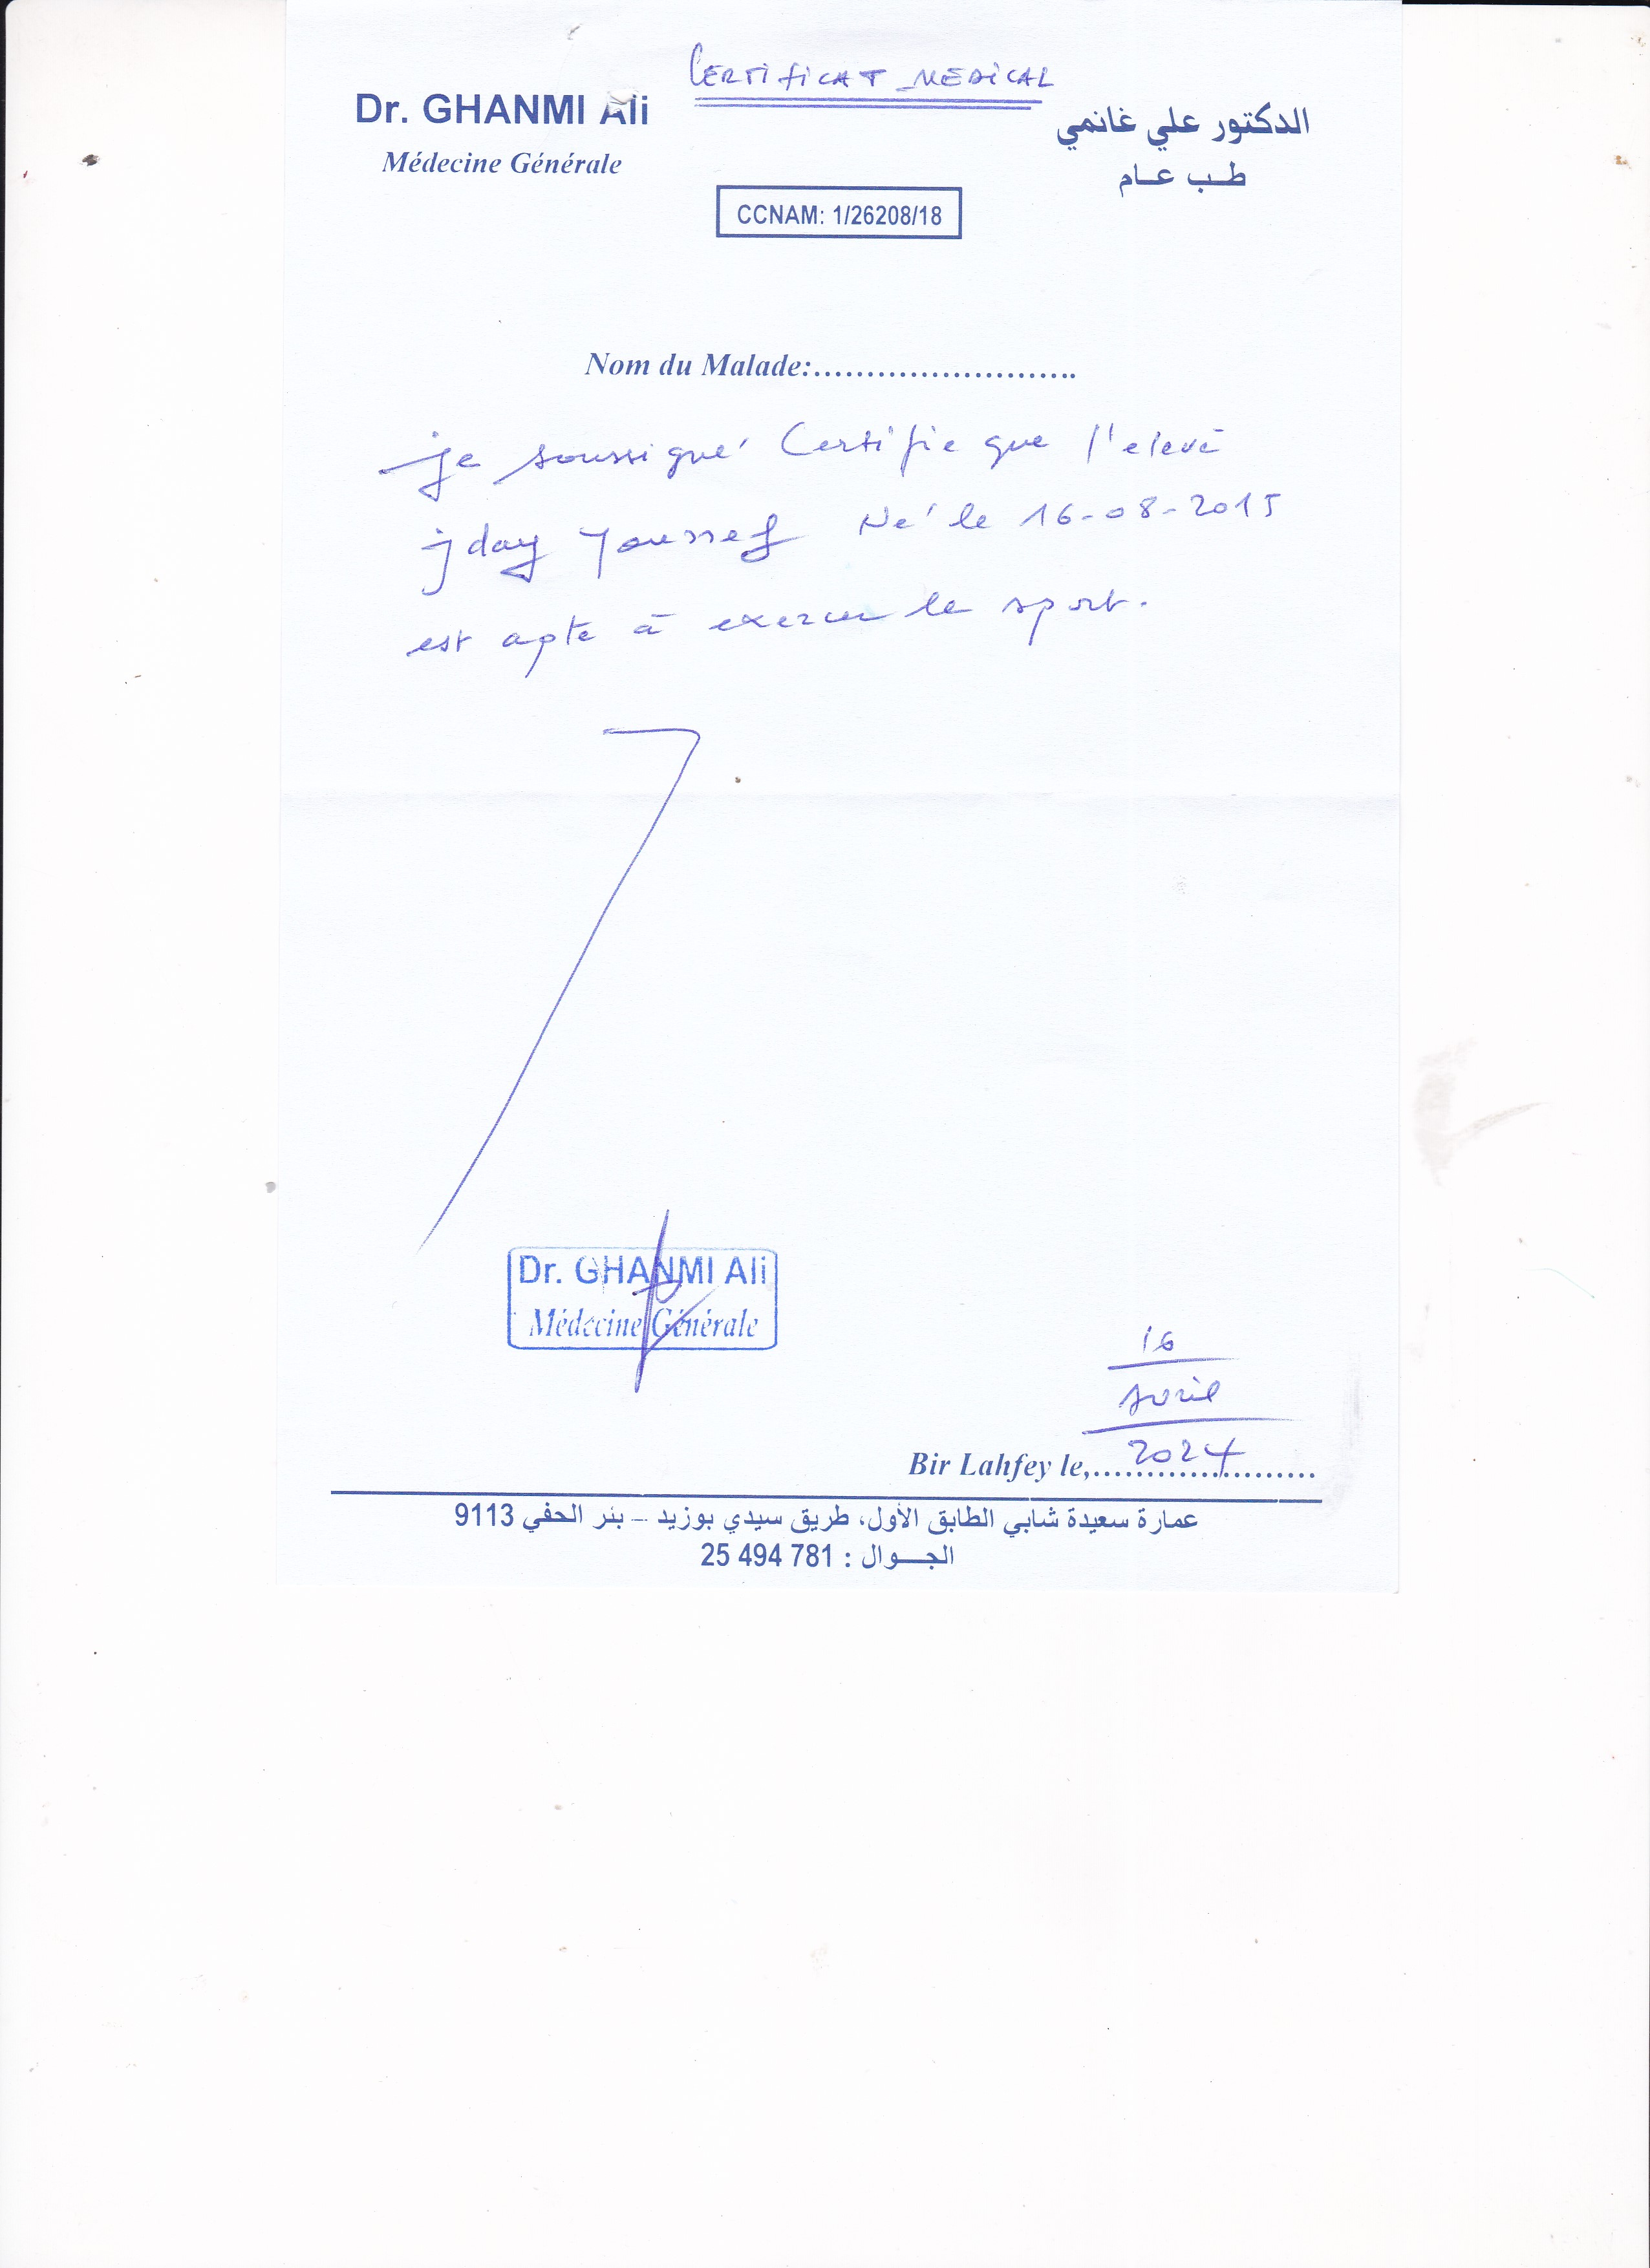 CERTIFICAT MEDICAL
Dr. GHANMI Ali
الدكتور علي غانمي
Médecine Générale
طـب عـام
CCNAM: 1/26208/18
Nom du Malade:..........................
je soussigné Certifie que l'elevé
jday Youssef Né le 16-08-2015
est apte à exercer le sport.
Dr. GHANMI Ali
Médecine Générale
16
Avril
2024
Bir Lahfey le,......................
عمارة سعيدة شابي الطابق الأول، طريق سيدي بوزيد – بئر الحفي 9113
الجـــوال : 781 494 25